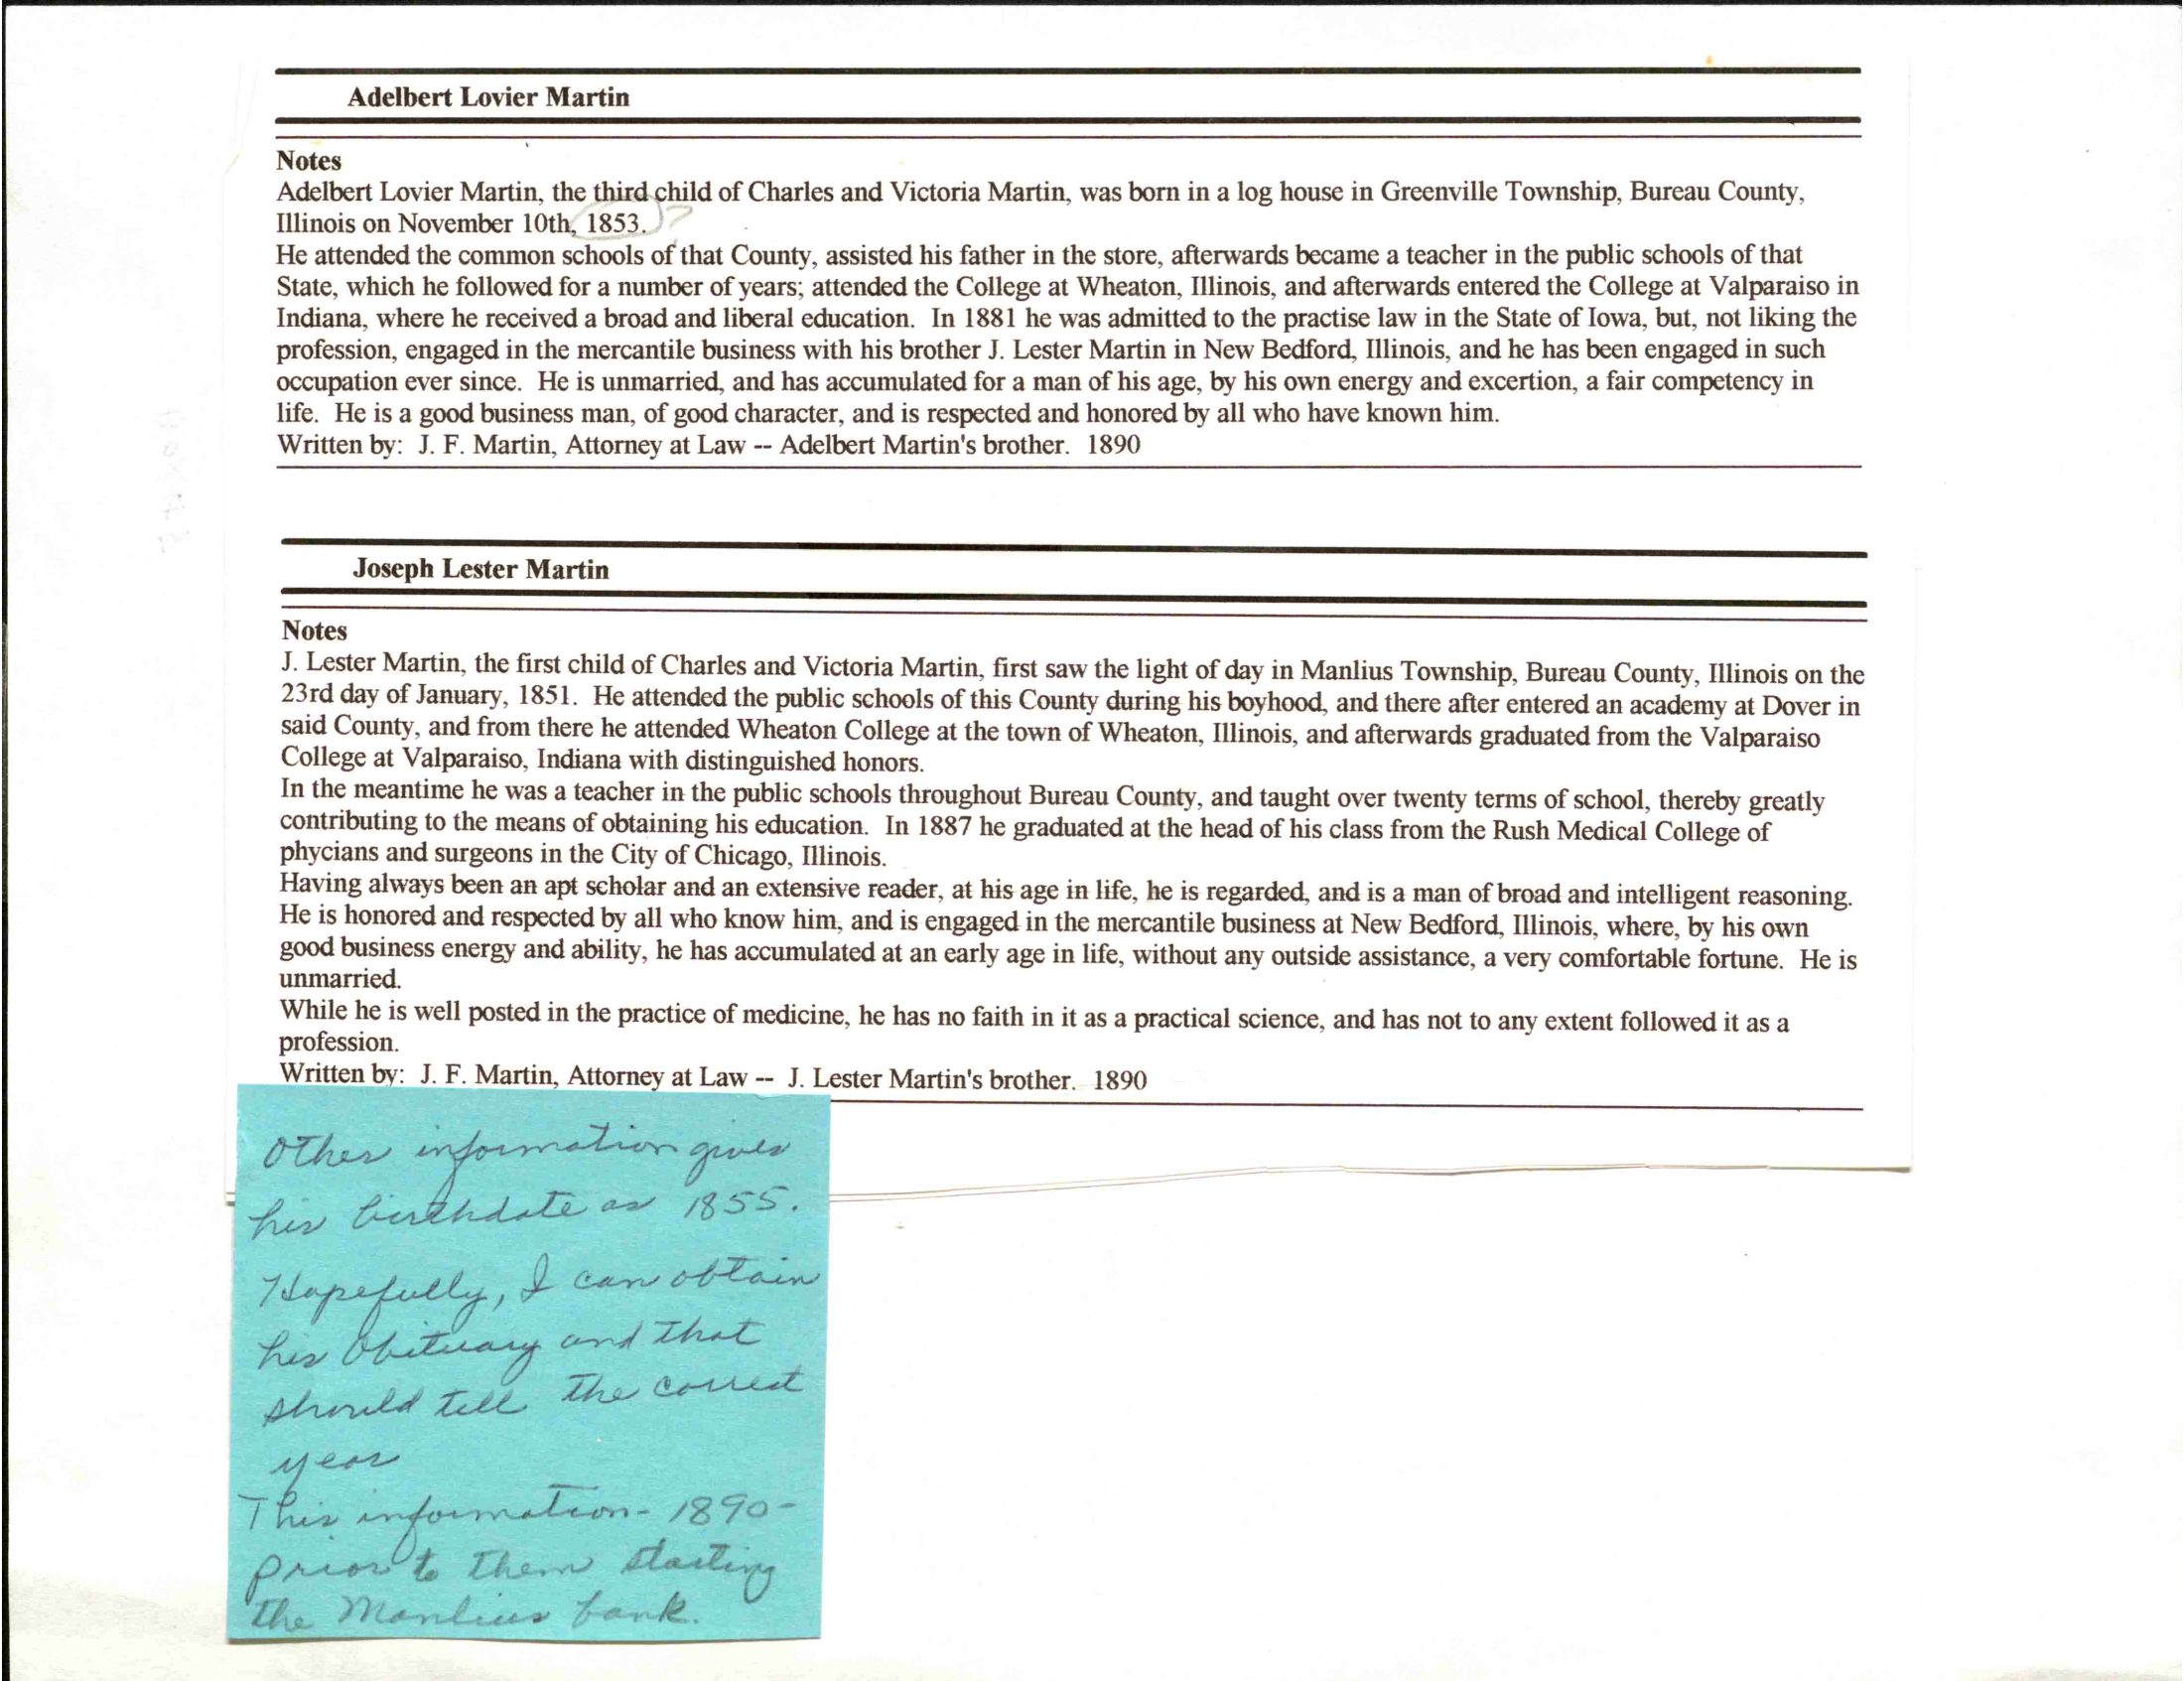 Adelbert Lovier Martin
Notes
Adelbert Lovier Martin, the third child of Charles and Victoria Martin, was born in a log house in Greenville Township, Bureau County,
Illinois on November 10th, 1853. ?
He attended the common schools of that County, assisted his father in the store, afterwards became a teacher in the public schools of that
State, which he followed for a number of years; attended the College at Wheaton, Illinois, and afterwards entered the College at Valparaiso in
Indiana, where he received a broad and liberal education. In 1881 he was admitted to the practise law in the State of Iowa, but, not liking the
profession, engaged in the mercantile business with his brother J. Lester Martin in New Bedford, Illinois, and he has been engaged in such
occupation ever since. He is unmarried, and has accumulated for a man of his age, by his own energy and excertion, a fair competency in
life. He is a good business man, of good character, and is respected and honored by all who have known him.
Written by: J. F. Martin, Attorney at Law -- Adelbert Martin's brother. 1890
Joseph Lester Martin
Notes
J. Lester Martin, the first child of Charles and Victoria Martin, first saw the light of day in Manlius Township, Bureau County, Illinois on the
23rd day of January, 1851. He attended the public schools of this County during his boyhood, and there after entered an academy at Dover in
said County, and from there he attended Wheaton College at the town of Wheaton, Illinois, and afterwards graduated from the Valparaiso
College at Valparaiso, Indiana with distinguished honors.
In the meantime he was a teacher in the public schools throughout Bureau County, and taught over twenty terms of school, thereby greatly
contributing to the means of obtaining his education. In 1887 he graduated at the head of his class from the Rush Medical College of
phycians and surgeons in the City of Chicago, Illinois.
Having always been an apt scholar and an extensive reader, at his age in life, he is regarded, and is a man of broad and intelligent reasoning.
He is honored and respected by all who know him, and is engaged in the mercantile business at New Bedford, Illinois, where, by his own
good business energy and ability, he has accumulated at an early age in life, without any outside assistance, a very comfortable fortune. He is
unmarried.
While he is well posted in the practice of medicine, he has no faith in it as a practical science, and has not to any extent followed it as a
profession.
Written by: J. F. Martin, Attorney at Law -- J. Lester Martin's brother. 1890
Other information gives
his birthdate as 1855.
Hopefully, I can obtain
his Obituary and that
should tell the correct
year
This information - 1890 -
prior to them starting
the Manlius bank.